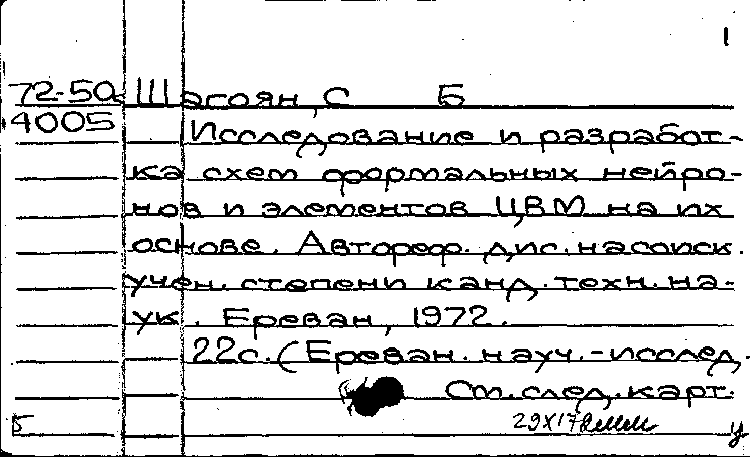 1
72-50 Шагоян, С Б
4005 Исследование и разработ-
ка схем формальных нейро-
нов и элементов ЦВМ на их
основе. Автореф. дис. на соиск.
учен. степени канд. техн. на-
ук. Ереван, 1972.
22с. (Ереван. науч.-исслед.
См. след. карт.
Б 29X17
у